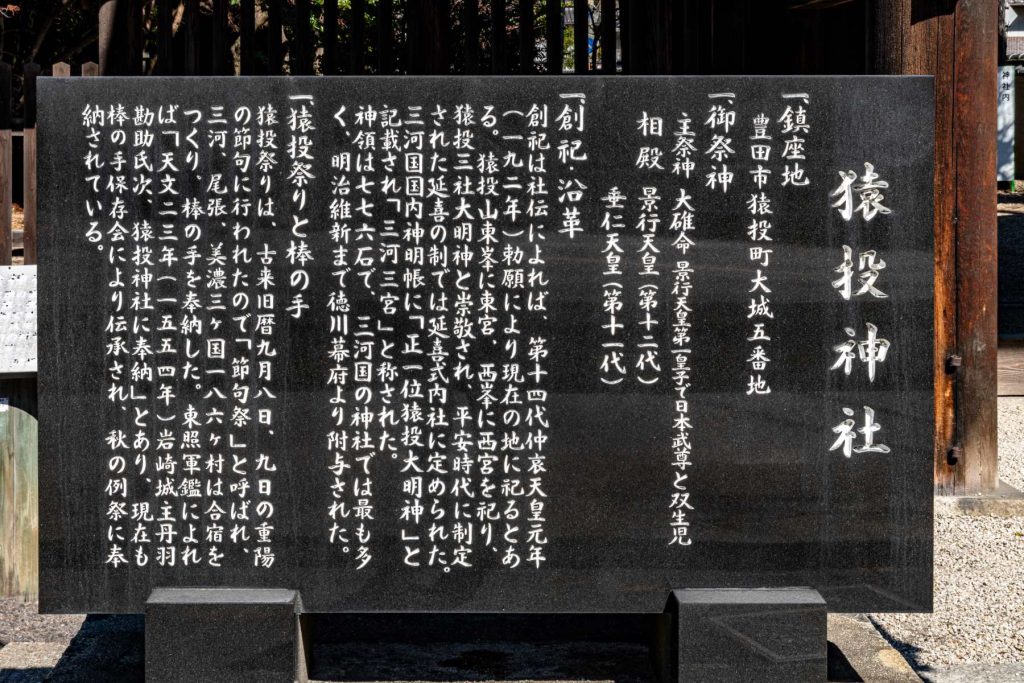 猿投神社
一、鎮座地
豊田市猿投町大城五番地
一、御祭神
主祭神 大碓命 景行天皇第一皇子で日本武尊と双生児
相殿 景行天皇(第十二代)
垂仁天皇(第十一代)
一、創祀・沿革
創祀は社伝によれば、第十四代仲哀天皇元年
(一九二年)勅願により現在の地に祀るとあ
る。猿投山東峯に東宮、西峯に西宮を祀り、
猿投三社大明神と崇敬され、平安時代に制定
された延喜の制では延喜式内社に定められた。
三河国国内神明帳に「正一位猿投大明神」と
記載され「三河三宮」と称された。
神領は七七六石で、三河国の神社では最も多
く、明治維新まで徳川幕府より附与された。
一、猿投祭りと棒の手
猿投祭りは、古来旧暦九月八日、九日の重陽
の節句に行われたので「節句祭」と呼ばれ、
三河、尾張、美濃三ヶ国一八六ヶ村は合宿を
つくり、棒の手を奉納した。東照軍鑑によれ
ば「天文二三年(一五五四年)岩崎城主丹羽
勘助氏次、猿投神社に奉納」とあり、現在も
棒の手保存会により伝承され、秋の例祭に奉
納されている。
神社内